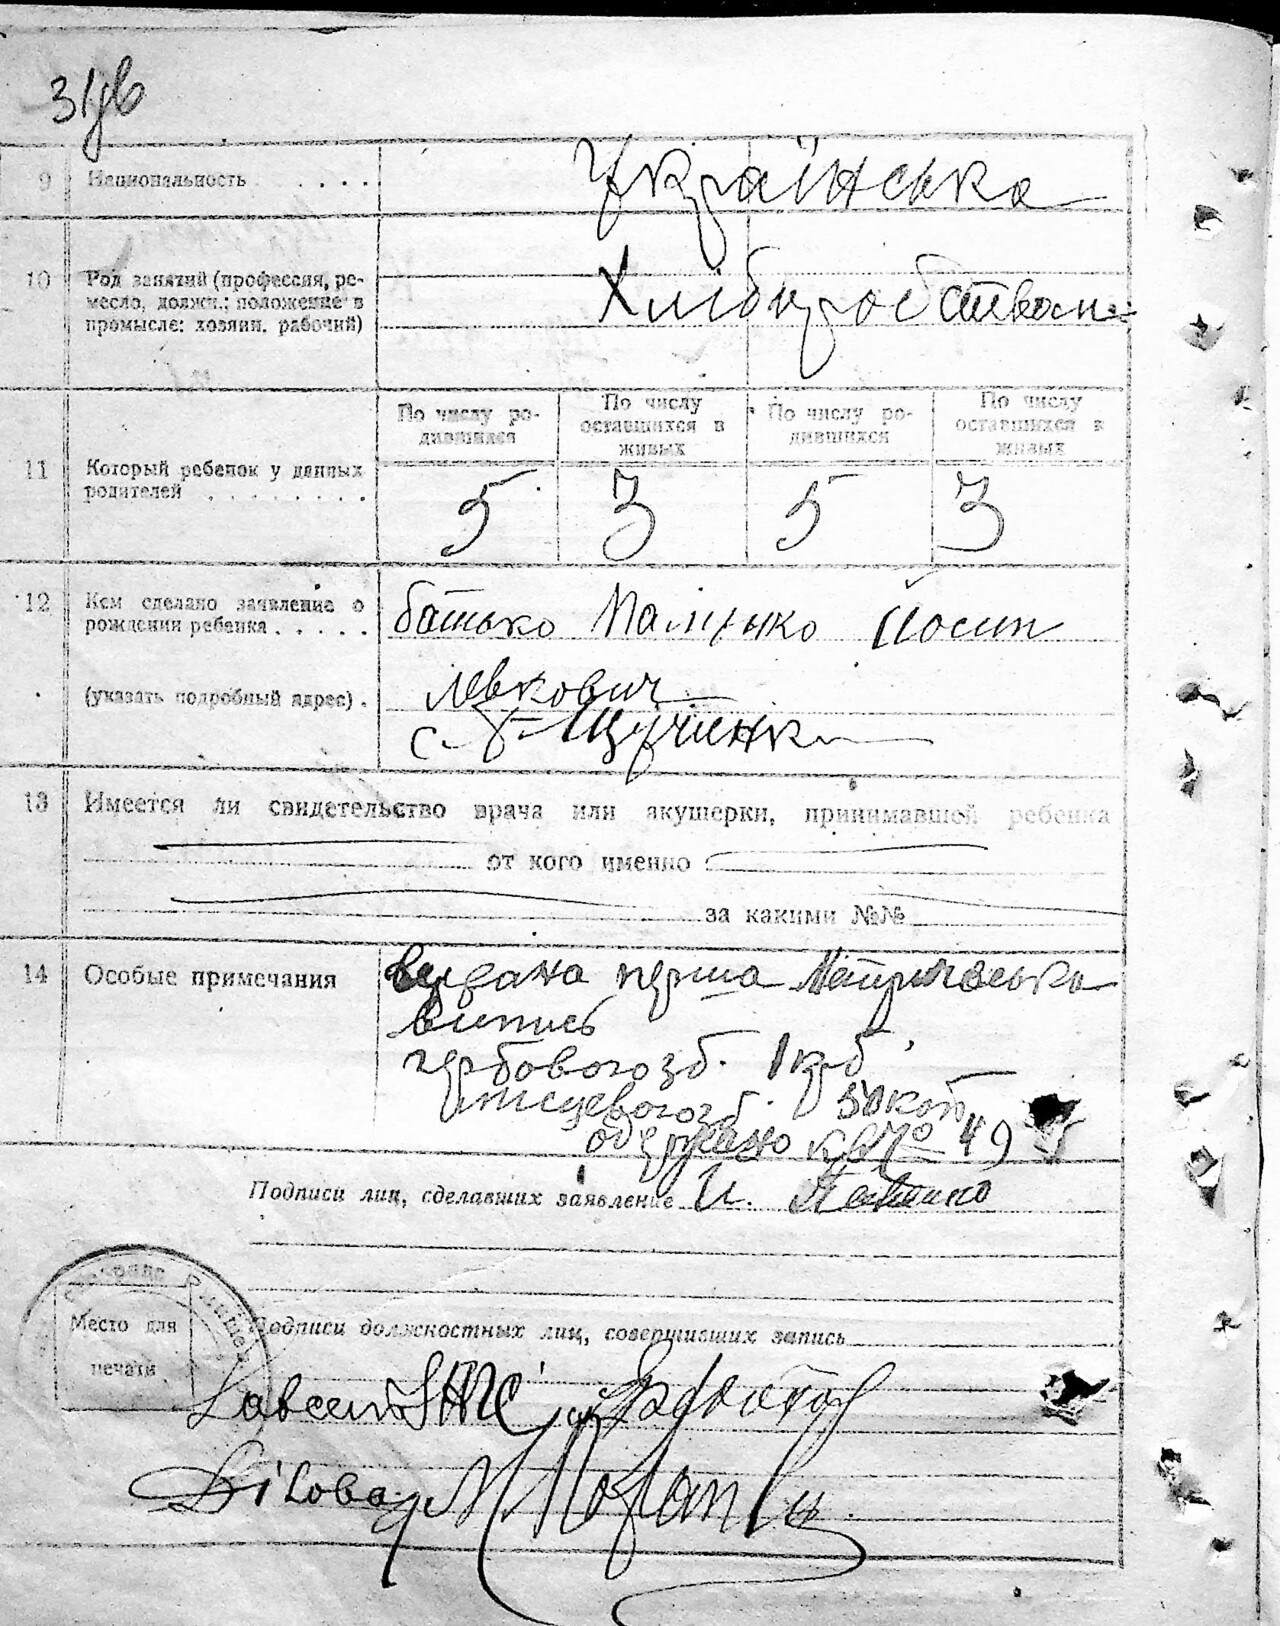 31 зв
9 Национальность . . . . Українська
10 Род занятий (профессия, ре-
месло, должн.; положение в
промысле: хозяин, рабочий)
Хліборобством
По числу ро-
дившихся
По числу
оставшихся в
живых
По числу ро-
дившихся
По числу
оставшихся в
живых
11 Который ребенок у данных
родителей . . . . . . . .
5 3 5 3
12 Кем сделано заявление о
рождении ребенка . . . . .
батько Йосип
Левкович
(указать подробный адрес) .
с.
13 Имеется ли свидетельство врача или акушерки, принимавшей ребенка
от кого именно
за какими №№
14 Особые примечания
видана перша
випись
гербового зб. 1 крб
місцевого зб. 50 коп
одержано кв № 49
Подписи лиц, сделавших заявление Й.
Место для
печати
Подписи должностных лиц, совершивших запись
Діловод